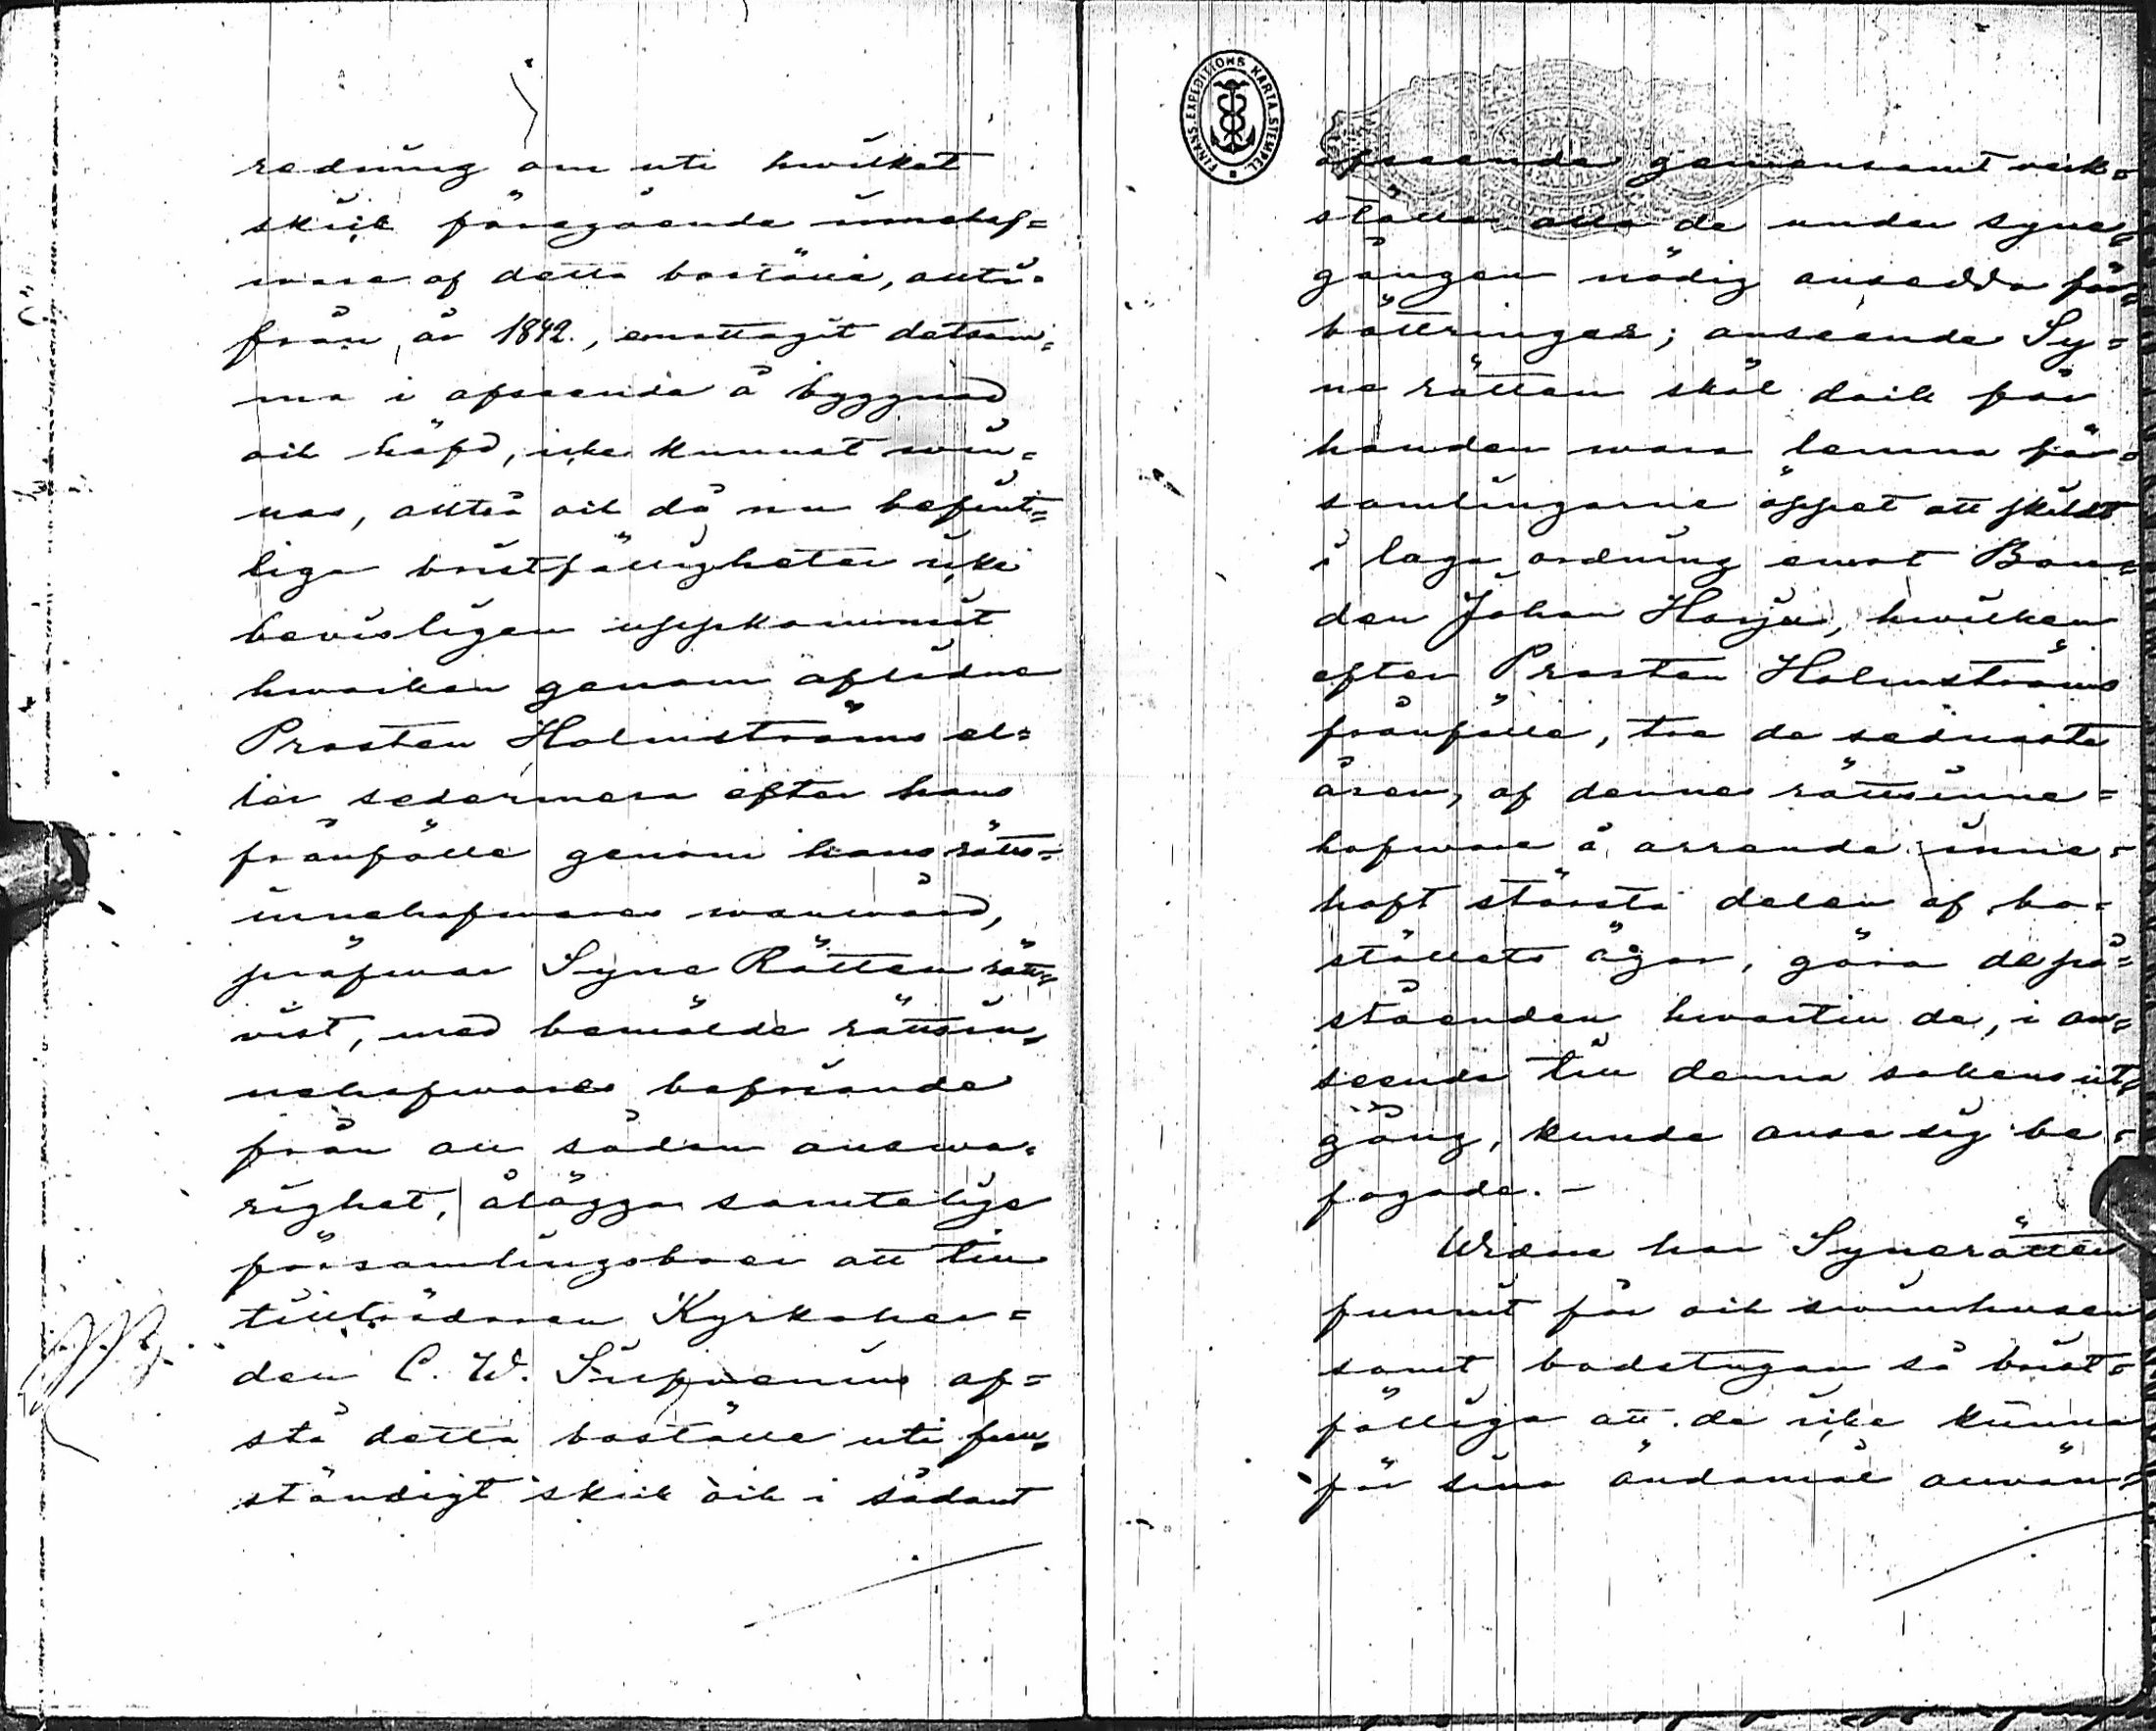 redning om uti hwilket
skick föregående innehaf=
ware af detta boställe, allt i=
från år 1842., emottagit detsam=
ma i afseende å byggnad
och häfd, icke kunnat win=
nas, alltså och då nu befint=
liga bristfälligheter icke
bevisligen uppkommit
hwarken genom aflidne
Prosten Holmströms el=
ler sedermera efter hans
frånfälle genom hans rätts=
innehafwares wanwård,
pröfwar Syne Rätten rätt=
vist, med bemälde rättsin=
nehafwares befriande
från all sådan answa=
righet, ålägga samtelige
församlingsboer att till
tillträdaren Kyrkoher=
den C. W. afstå
stå detta boställe uti full=
ständigt skick och i sådant
FINANS.EXPEDITIONS KARTA STEMPEL.
afseende gemensamt verk=
ställa alla de under syne=
gången nödig ansedda för=
bättringar; anseende Sy=
ne rätten skäl dock för
handen wara lemna för=
samlingarne öppet att skildt
i laga ordning emot Bon=
den Johan Harju, hwilken
efter Prosten Holmströms
frånfälle, tre de sednaste
åren, af dennes rättsinne=
hafware å arrende inne=
haft största delen af bo=
ställets ägor, göra de på=
ståenden hwartill de, i an=
seende till denna sakens ut=
gång, kunde anse sig be=
fogade. –
Widare har Synerätten
funnit får och swinhusen
samt badstugan så brist=
fälliga att de icke kunna
för sina ändamål anwän=